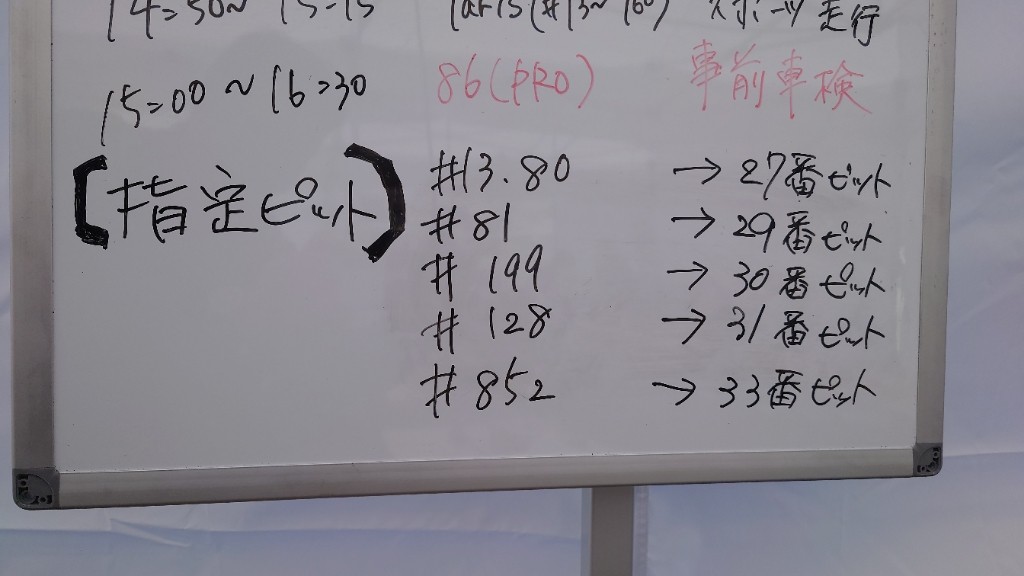 14=50〜15=15 スポーツ走行
15=00〜16=30 86(PRO) 事前車検
【指定ピット】 #13.80 → 27番ピット
#81 → 29番ピット
# 199 → 30番ピット
# 128 → 31番ピット
# 852 → 33番ピット